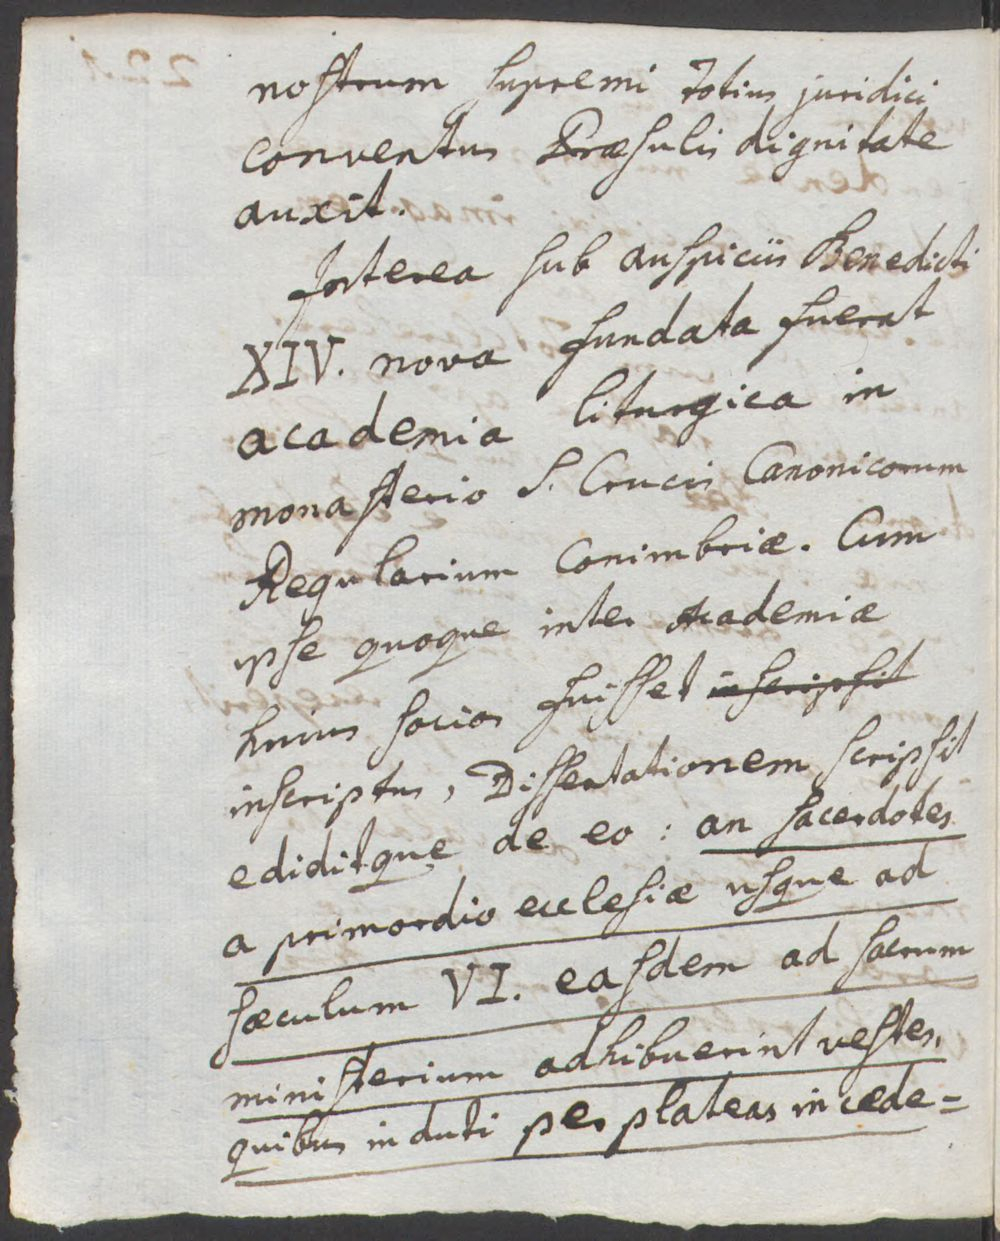 nostrum supremi totius juridici
conventus Præsulis dignitate
auxit.
Interea sub auspiciis Benedicti
XIV. nova fundata fuerat
academia liturgica in
monasterio S. Crucis Canonicorum
Regularium Conimbriæ. Cum
ipse quoque inter Academiæ
huius socios fuisset inscripsit
inscriptus, Dissertationem scripsit
ediditque de eo: an sacerdotes
a primordio ecclesiæ usque ad
sæculum VI. easdem ad sacrum
ministerium adhibuerint vestes,
quibus induti per plateas incede=